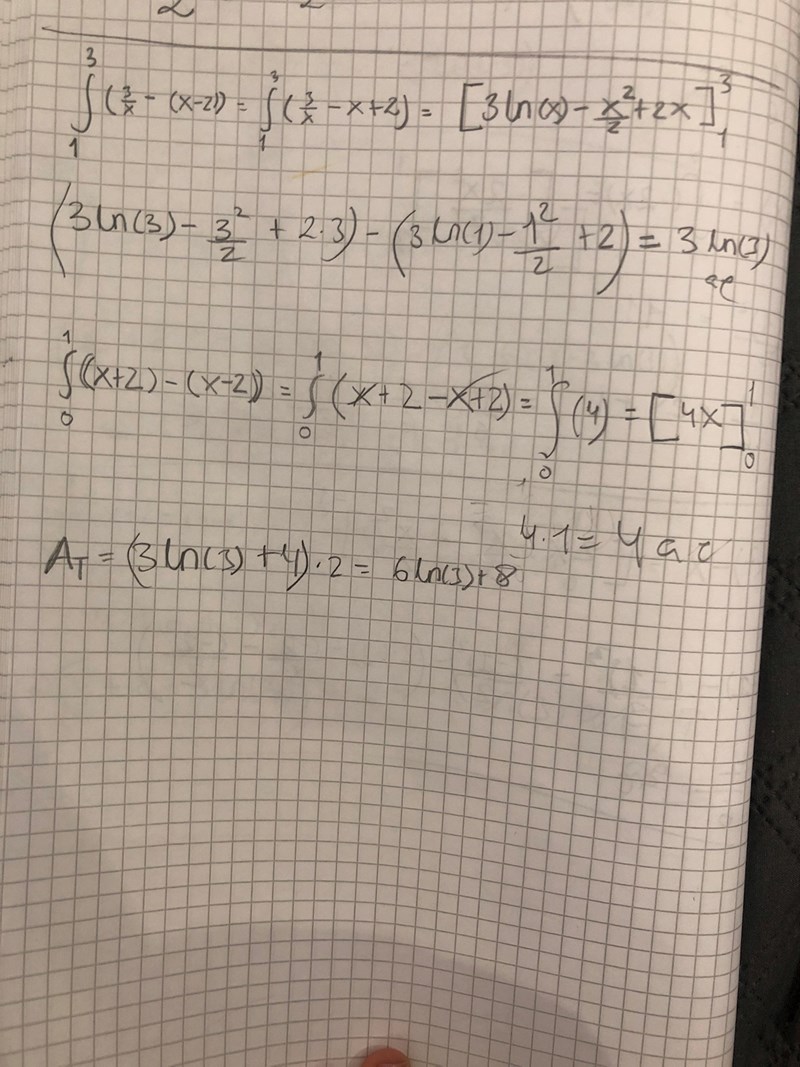 2 2
∫₁³ (3/x - (x-2)) = ∫₁³ (3/x - x+2) = [3 ln(x) - x²/2 + 2x]₁³
(3 ln(3) - 3²/2 + 2·3) - (3 ln(1) - 1²/2 + 2) = 3 ln(3)
ae
∫₀¹ ((x+2) - (x-2)) = ∫₀¹ (x + 2 - x+2) = ∫₀¹ (4) = [4x]₀¹
4·1 = 4 a e
A_T = (3 ln(3) + 4)·2 = 6 ln(3) + 8